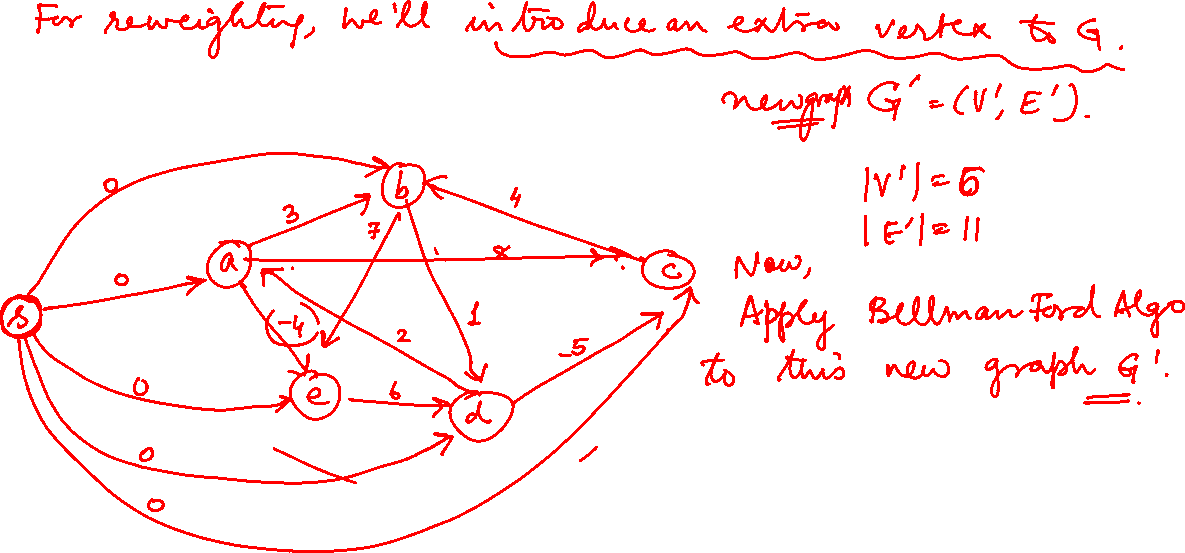 For reweighting, we'll introduce an extra vertex to G.
new graph G' = (V', E').
|V'| = 6
|E'| = 11
Now,
Apply Bellman Ford Algo
to this new graph G'.
0
b
4
3
7
a
8
c
0
s
-4
2
1
-5
e
6
d
0
0
0